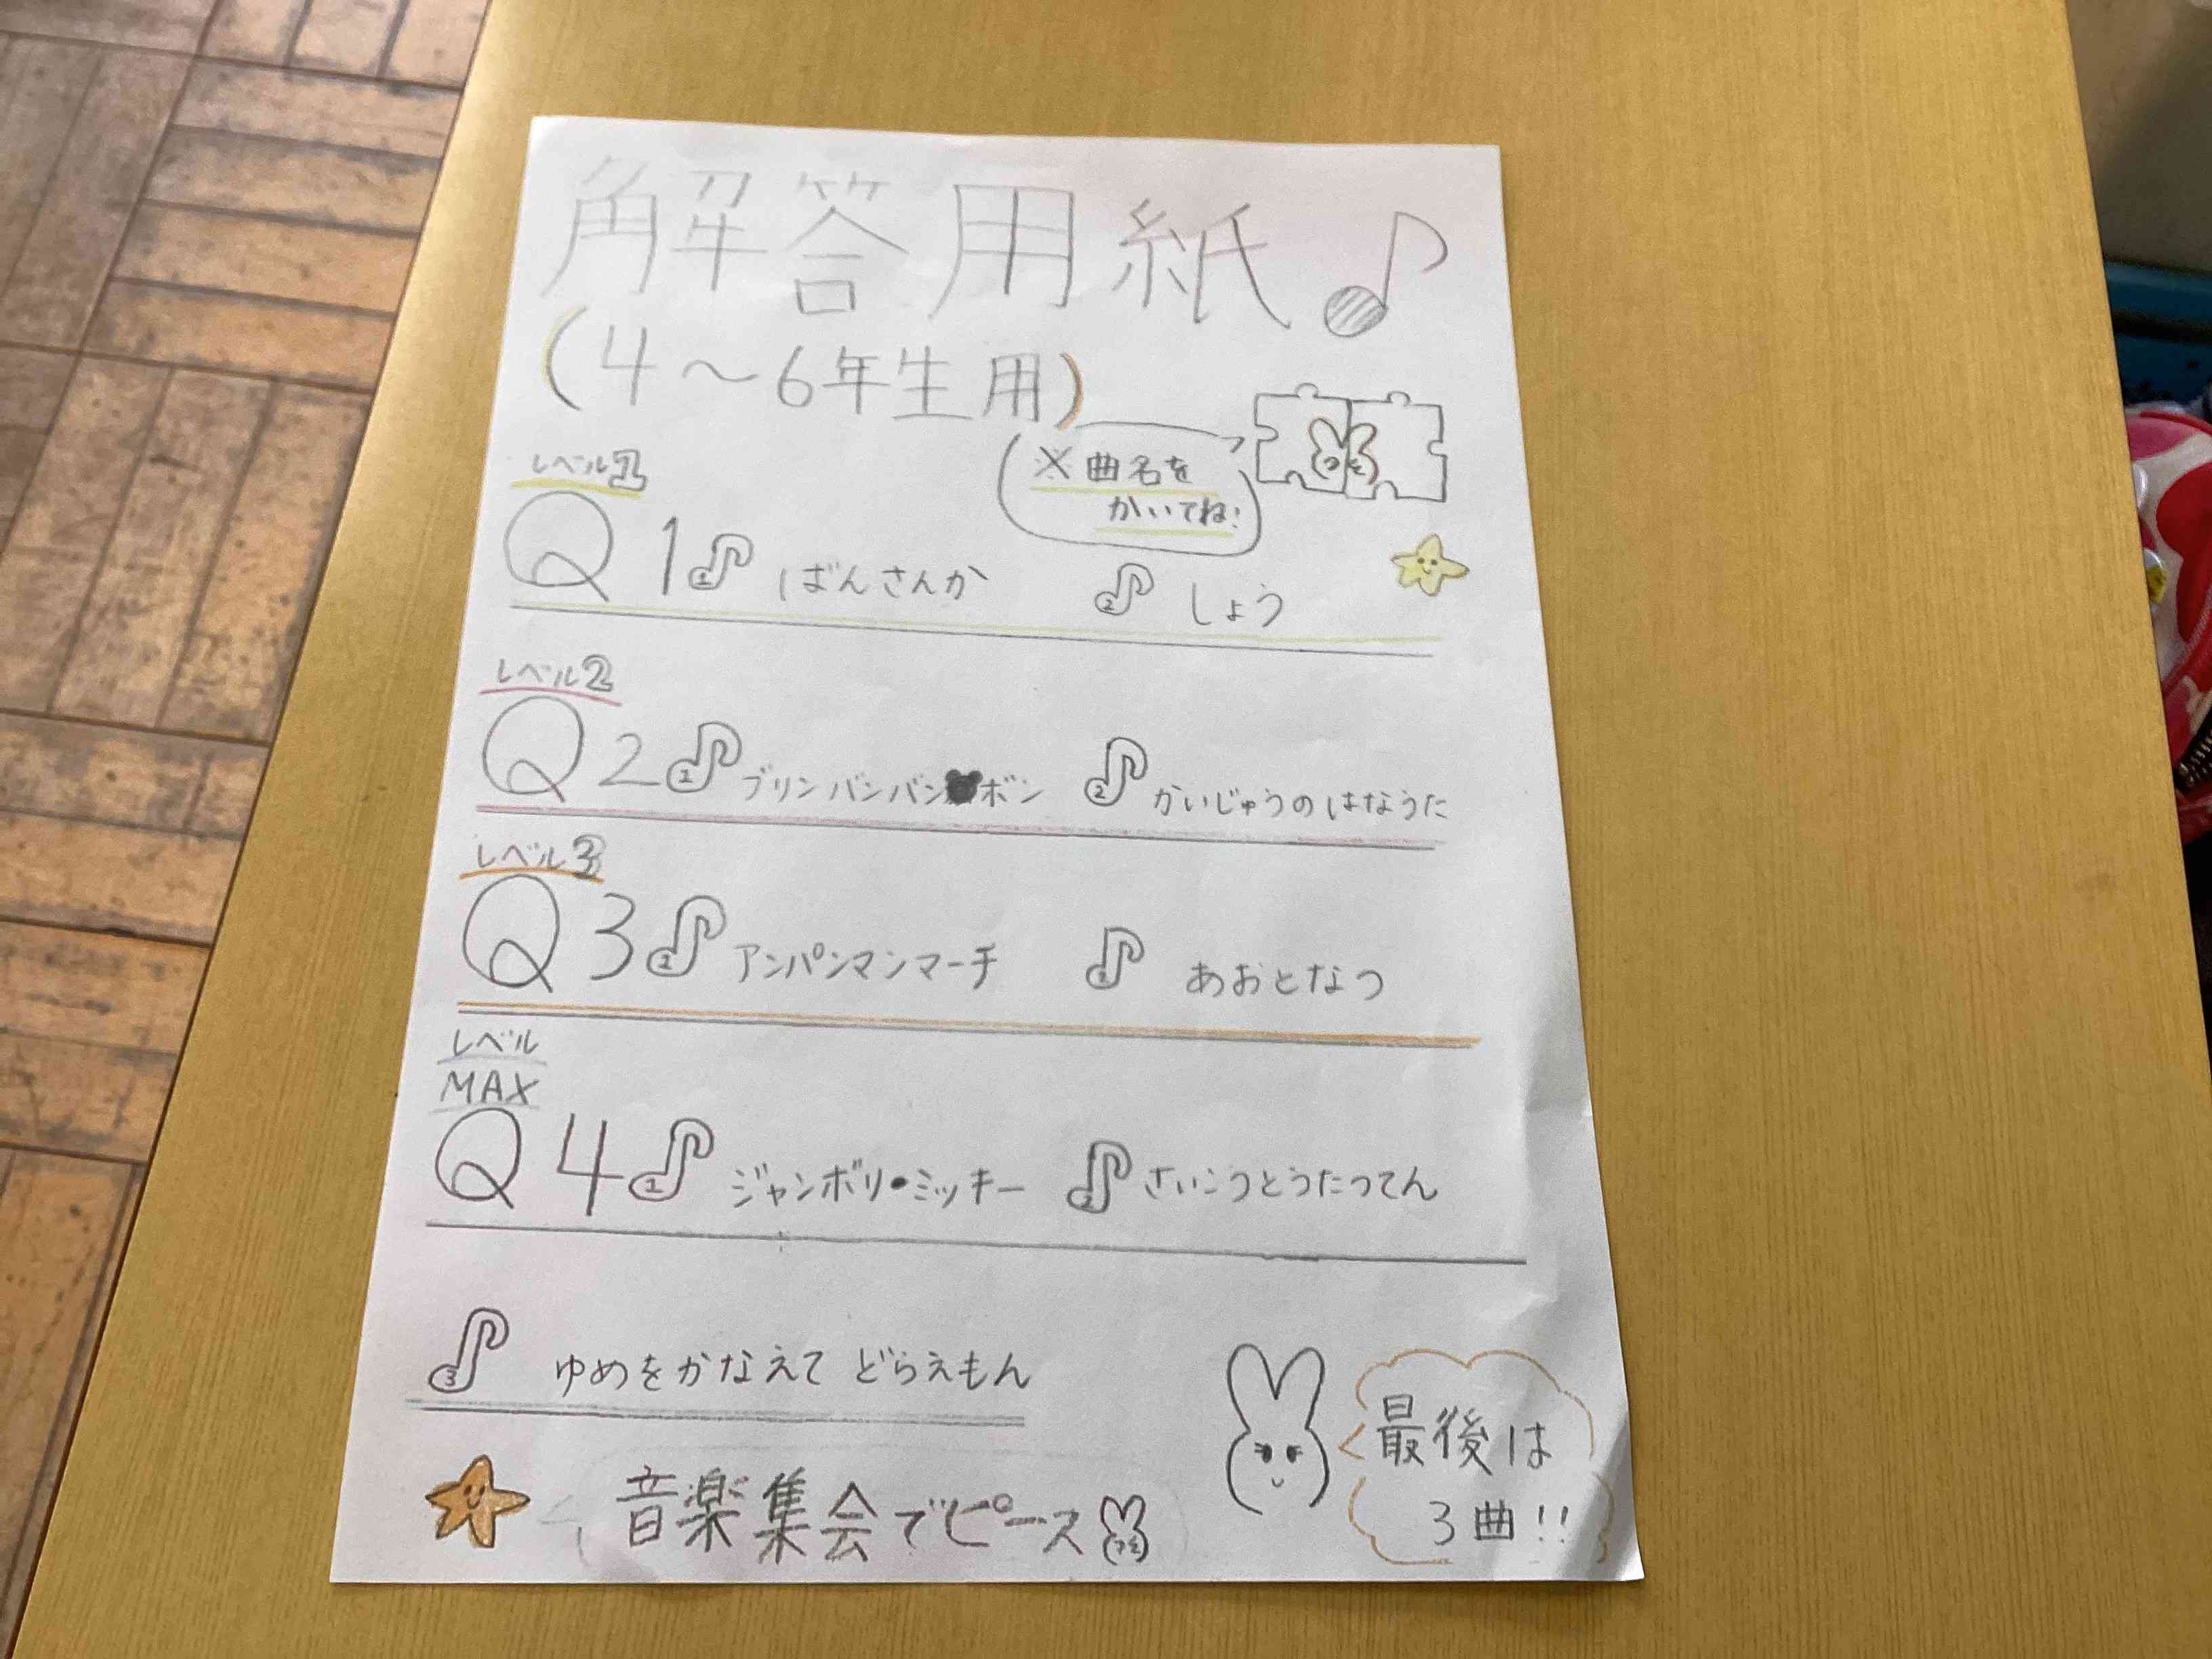 解答用紙♪
(4〜6年生用)
※曲名を
かいてね!
レベル1
Q1 1 ばんさんか 2 しょう
レベル2
Q2 1 ブリンバンバンボン 2 かいじゅうのはなうた
レベル3
Q3 アンパンマンマーチ あおとなつ
レベル
MAX
Q4 1 ジャンボリ・ミッキー 2 さいこうとうたつてん
3 ゆめをかなえて どらえもん
最後は
3曲!!
音楽集会でピース